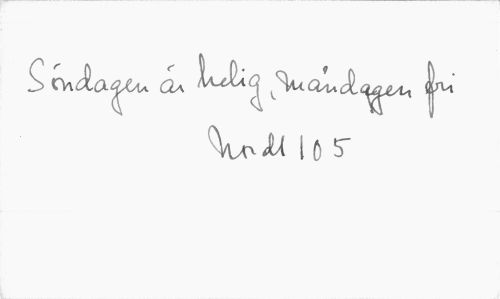 Söndagen är helig, måndagen fri
Nordl 105